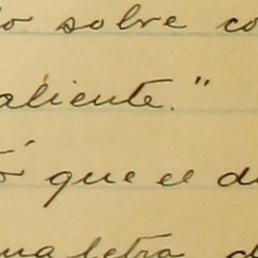 sobre co
aliente."
ó que el d
una letra d